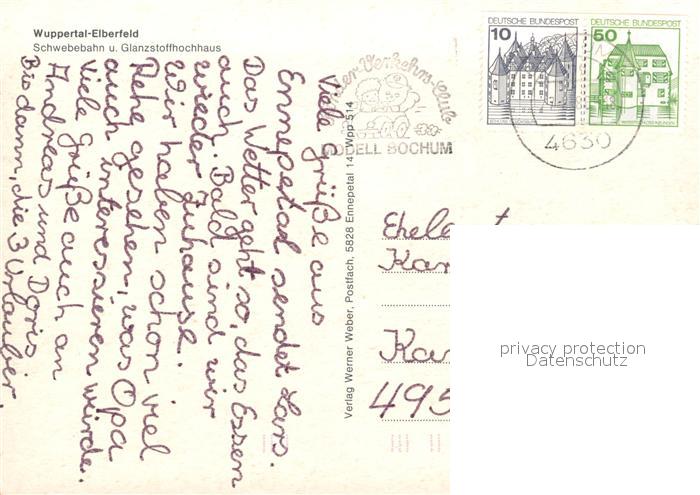 Wuppertal-Elberfeld
Schwebebahn u. Glanzstoffhochhaus
Viele Grüße aus
Ennepetal sendet Lars.
Das Wetter geht so, das Essen
auch. Bald sind wir
wieder Zuhause.
Wir haben schon viel
Rehe gesehen, was Opa
auch interessieren würde.
Viele Grüße auch an
Andreas und Doris
Bis dann, die 3 Urlauber.
Verlag Werner Weber, Postfach, 5828 Ennepetal 14 Wpp 514
Kinder-Verkehrs-Club
MODELL BOCHUM
DEUTSCHE BUNDESPOST
10
DEUTSCHE BUNDESPOST
50
4630
Ehele
Kar
Kar
495
privacy protection
Datenschutz